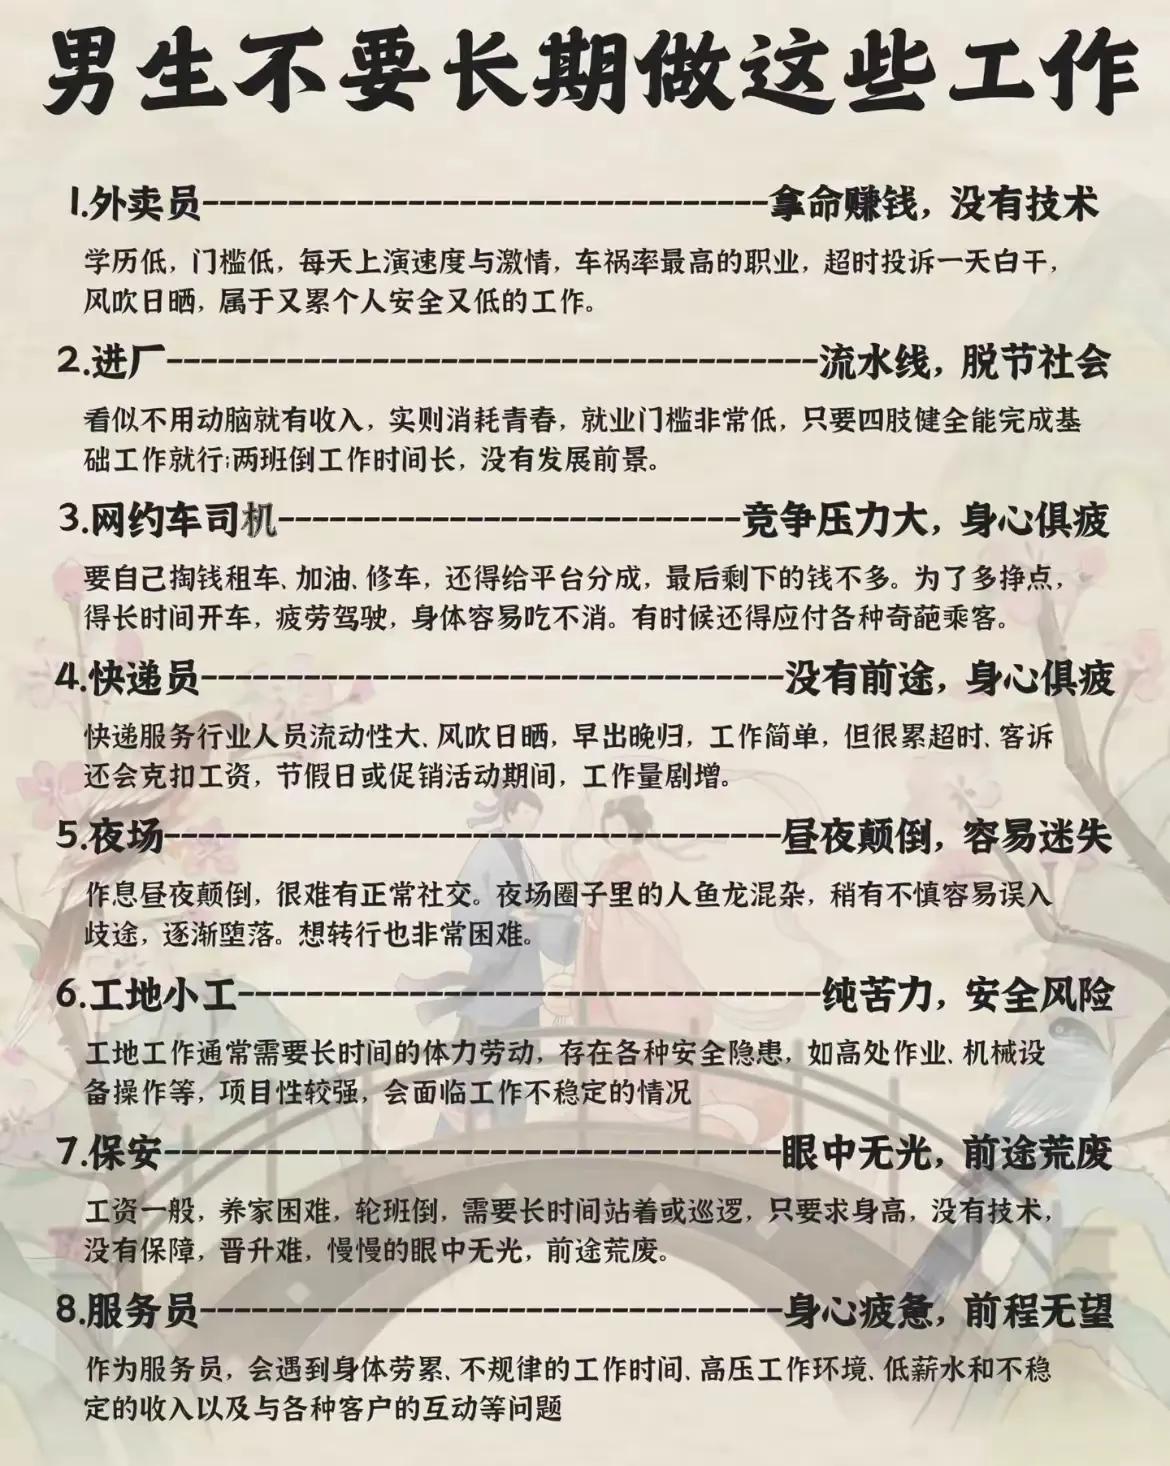 男生不要长期做这些工作
1.外卖员------------------------------拿命赚钱，没有技术
学历低，门槛低，每天上演速度与激情，车祸率最高的职业，超时投诉一天白干，
风吹日晒，属于又累个人安全又低的工作。
2.进厂-----------------------------------流水线，脱节社会
看似不用动脑就有收入，实则消耗青春，就业门槛非常低，只要四肢健全能完成基
础工作就行;两班倒工作时间长，没有发展前景。
3.网约车司机-------------------------竞争压力大，身心俱疲
要自己掏钱租车、加油、修车，还得给平台分成，最后剩下的钱不多。为了多挣点，
得长时间开车，疲劳驾驶，身体容易吃不消。有时候还得应付各种奇葩乘客。
4.快递员-------------------------------没有前途，身心俱疲
快递服务行业人员流动性大、风吹日晒，早出晚归，工作简单，但很累超时、客诉
还会克扣工资，节假日或促销活动期间，工作量剧增。
5.夜场---------------------------------昼夜颠倒，容易迷失
作息昼夜颠倒，很难有正常社交。夜场圈子里的人鱼龙混杂，稍有不慎容易误入
歧途，逐渐堕落。想转行也非常困难。
6.工地小工-------------------------------纯苦力，安全风险
工地工作通常需要长时间的体力劳动，存在各种安全隐患，如高处作业、机械设
备操作等，项目性较强，会面临工作不稳定的情况
7.保安---------------------------------眼中无光，前途荒废
工资一般，养家困难，轮班倒，需要长时间站着或巡逻，只要求身高，没有技术，
没有保障，晋升难，慢慢的眼中无光，前途荒废。
8.服务员-------------------------------身心疲惫，前程无望
作为服务员，会遇到身体劳累、不规律的工作时间、高压工作环境、低薪水和不稳
定的收入以及与各种客户的互动等问题